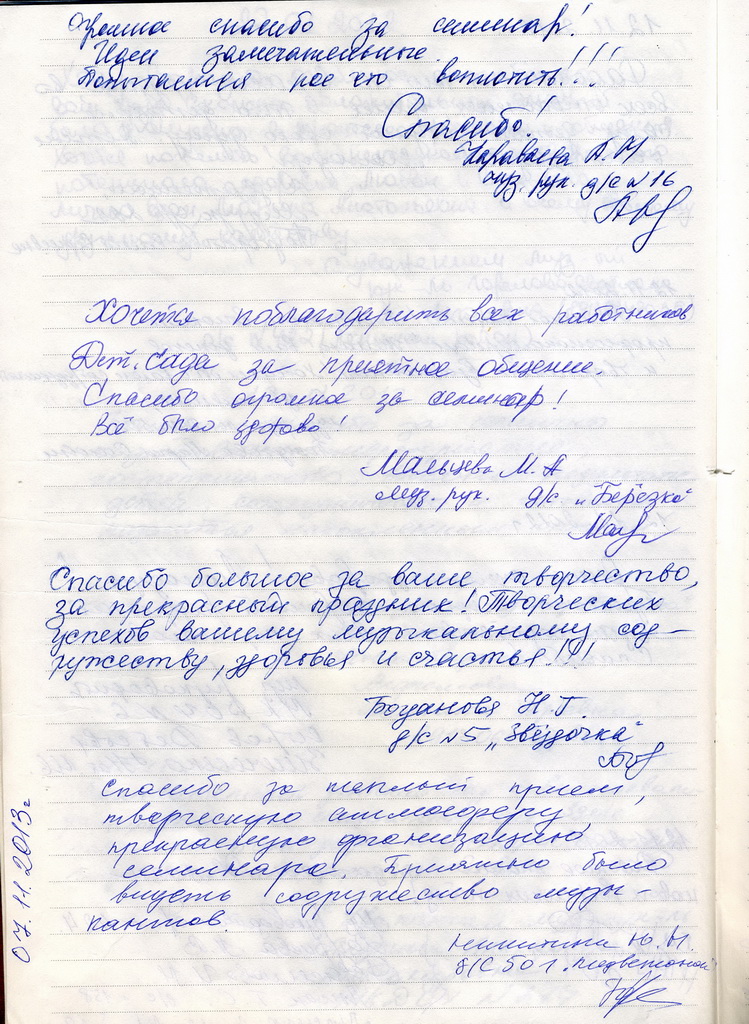 Огромное спасибо за семинар!
Идеи замечательные.
Попытаемся кое что воплотить!!!
Спасибо!
Караваева А. Н
муз. рук. д/с № 16
Хочется поблагодарить всех работников
Дет. сада за приятное общение.
Спасибо огромное за семинар!
Всё было здорово!
Мальцева М. А
муз. рук. д/с „Берёзка"
Спасибо большое за ваше творчество,
за прекрасный праздник! Творческих
успехов вашему музыкальному сод-
ружеству, здоровья и счастья!!!
Н. Г.
д/с №5 „Звёздочка"
Спасибо за теплый прием,
творческую атмосферу,
прекрасную организацию
семинара. Приятно было
видеть содружество музы-
кантов.
Никитина Ю. Н.
д/с 50
07.11.2013г